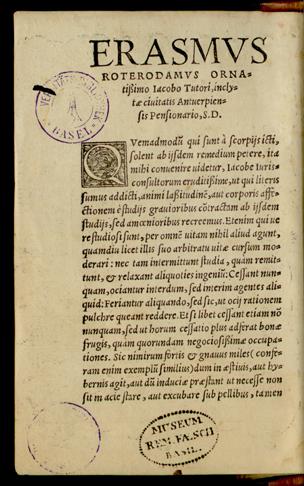 ERASMVS
ROTERODAMVS ORNA-
tißimo Iacobo Tutori, inclytæ ciuitatis Antuerpien-
sis Pensionario, S.D.
Qvemadmodũ qui sunt à scorpijs icti,
solent ab ijsdem remedium petere, ita
mihi conuenire uidetur, Iacobe Iuris-
consultorum eruditißime, ut qui literis
sumus addicti, animi laßitudinẽ, aut corporis affe-
ctionem è studijs grauioribus cõtractam ab ijsdem
studijs, sed amœnioribus recreemus. Etenim qui ue
re studiosi sunt, per omnẽ uitam nihil aliud agunt,
quamdiu licet illis suo arbitratu uitæ cursum mo-
derari: nec tam intermittunt studia, quàm remit-
tunt, & relaxant aliquoties ingeniũ: Cessant nun-
quam, ociantur interdum, sed interim agentes ali-
quid: Feriantur aliquando, sed sic, ut ocij rationem
pulchre queant reddere. Et si libet cessant etiam nõ
nunquam, sed ut horum cessatio plus adferat bonæ
frugis, quàm quorundam negociosißimæ occupa-
tiones. Sic nimirum fortis & gnauus miles (confe-
ram enim exemplũ similius) dum in æstiuis, aut hy-
bernis agit, aut dũ induciæ præstant ut necesse non
sit in acie stare, aut excubare sub pellibus, tamen
BASEL
MUSEUM
REM. FÆSCH
BASIL.